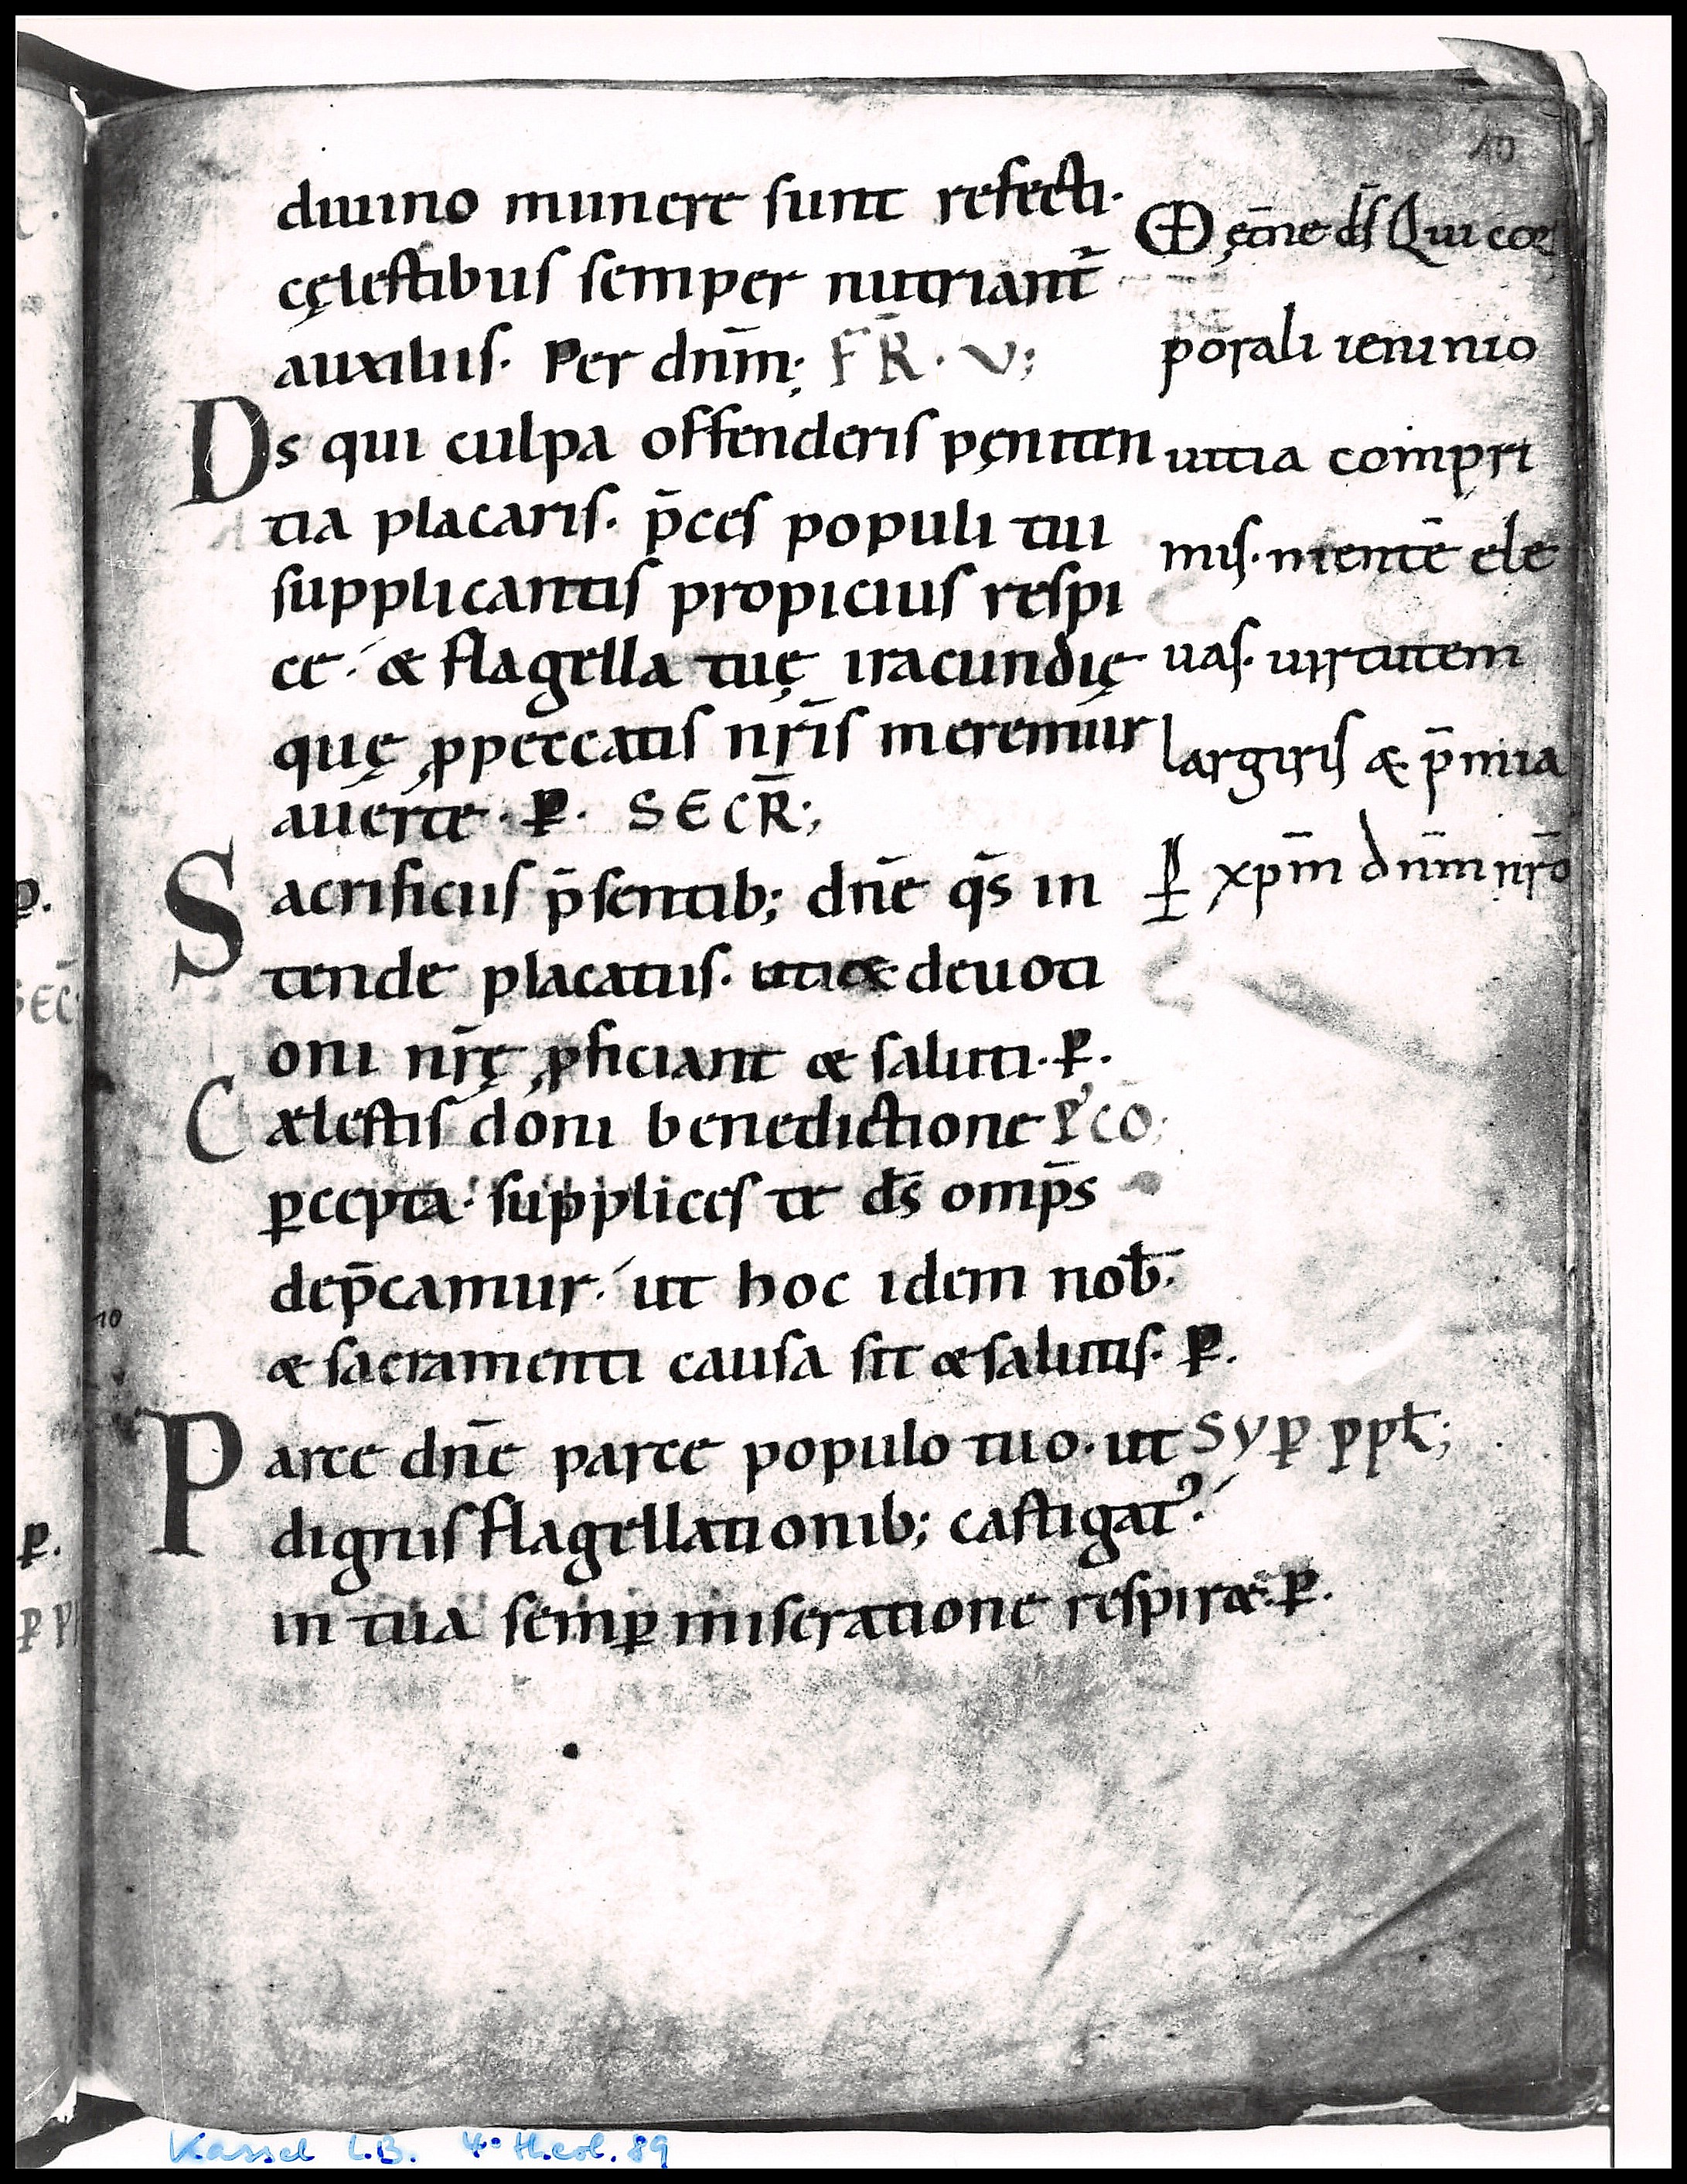 10
diuino munere sunt refecti·
cęlestibus semper nutriant᷑
auxiliis· Per dn̄m; F̄R̄· V;
Ds qui culpa offenderis pęniten
tia placaris· p̄ces populi tui
supplicantis propicius respi
ce· & flagella tuę iracundię
quę ꝓpeccatis nr̄is meremur
auerte· ꝑ· SECR̄;
Sacrificiis p̄sentib; dn̄e qs̄ in
tende placatus· uti& deuoti
oni nr̄ę ꝓficiant & saluti· ꝑ.
Cęlestis doni benedictione P᾽CŌ;
ꝑcepta· supplices te ds̄ omp̄s
dep̄camur· ut hoc idem nob̄·
& sacramenti causa sit & salutis· ꝑ.
Parce dn̄e parce populo tuo· ut SVꝑ ppt̄;
dignis flagellationib; castigat᷑·
in tua semꝑ miseratione respir&· ꝑ.
ęt̄ne ds̄ Qui cor
porali ieiunio
uitia compri
mis· mentē ele
uas· uirtutem
largiris & p̄mia
ꝑ xp̄m dn̄m nr̄o
ꝑ.
SEC̄
10
ꝑ.
ꝑ p
Kassel L.B. 4° theol. 89